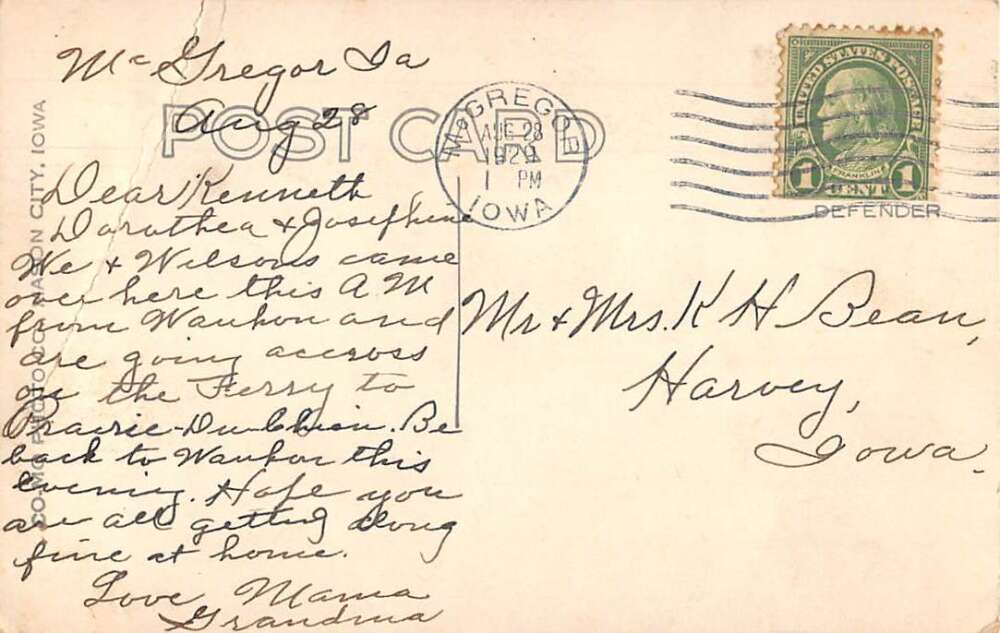 Mc Gregor Ia
Aug 28
POST CARD
McGREGOR
AUG 28
1929
1 PM
IOWA
UNITED STATES POSTAGE
FRANKLIN
1 CENT 1
DEFENDER
CO-MO PHOTO CO. MASON CITY, IOWA
Dear Kenneth
Dorothea & Josephine
We & Wilsons came
over here this A M
from Waukon and
are going accross
on the Ferry to
Prairie-Du-Chien. Be
back to Waukon this
evening. Hope you
are all getting along
fine at home.
Love Mama
Grandma
Mr & Mrs. K H Bean,
Harvey,
Iowa.